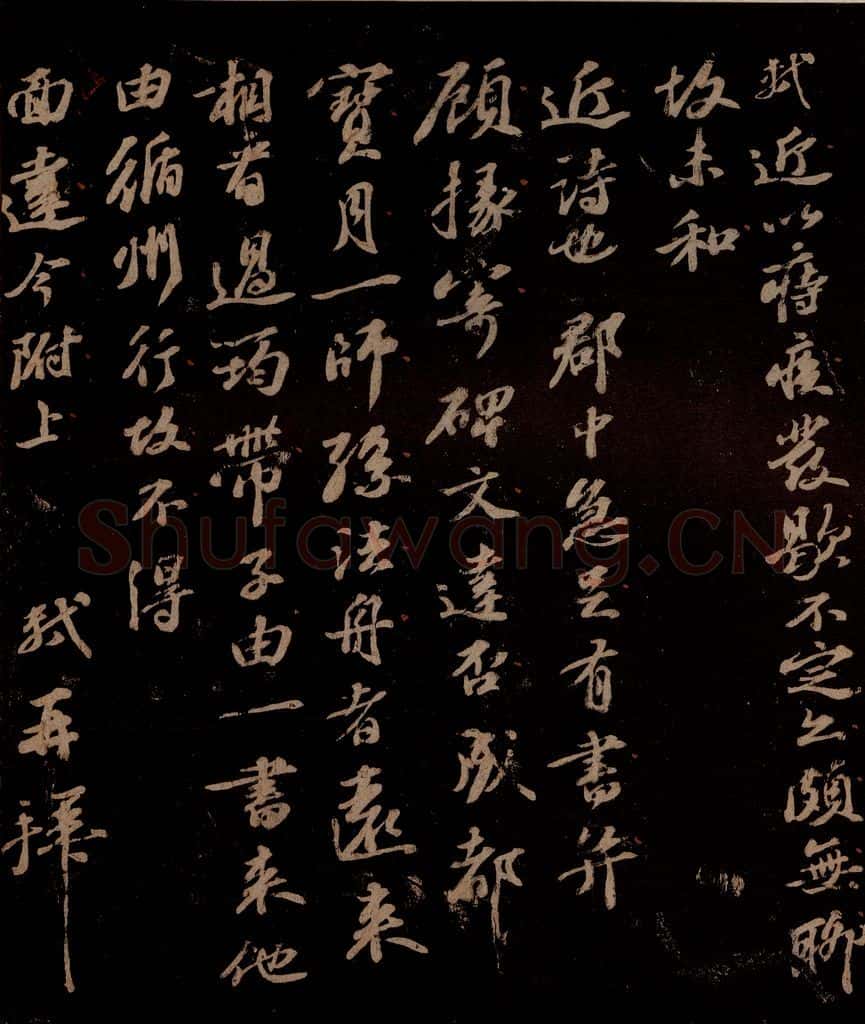 軾近以痔疾發歇不定亦頗無聊
故未和
近詩也 郡中急足有書并
顧掾寄碑文達否成都
寶月一師孫法舟者遠來
相看過筠帶子由一書來他
由循州行故不得
面達今附上 軾再拜
Shufawang.CN